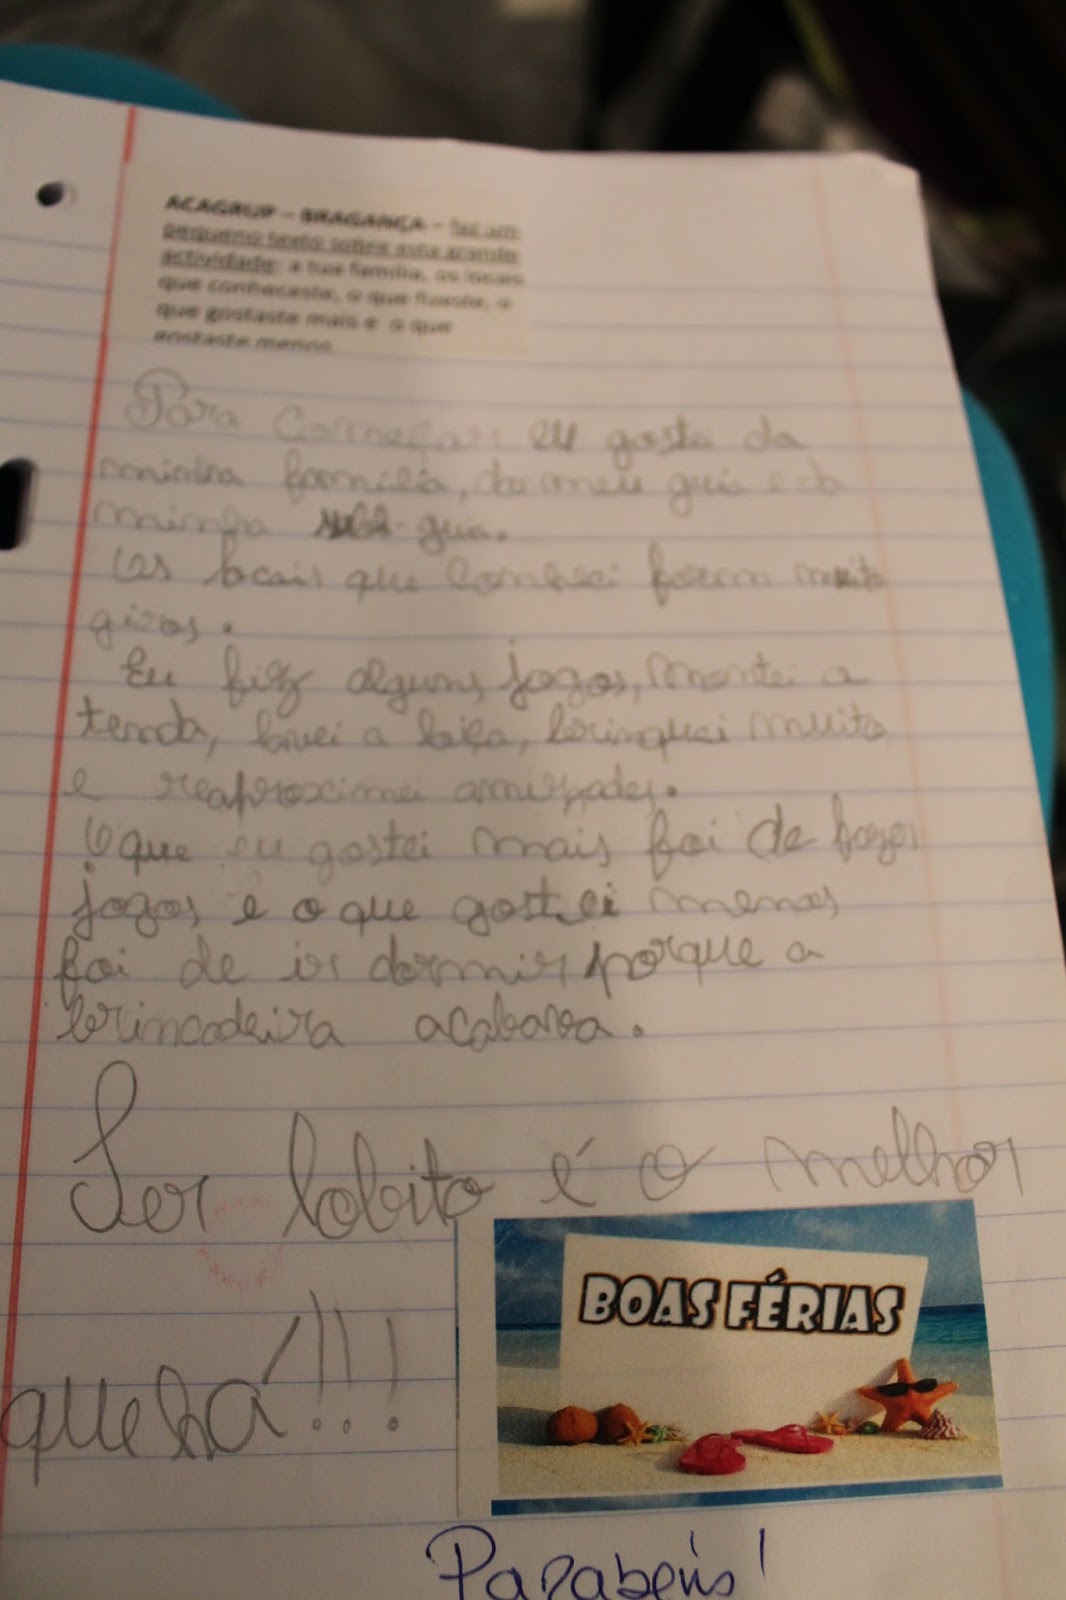 ACAGRUP – BRAGANÇA – faz um
pequeno texto sobre esta grande
actividade: a tua família, os locais
que conheceste, o que fizeste, o
que gostaste mais e o que
gostaste menos
Para começar eu gostei da
minha família, do meu guia e da
minha sub-guia.
Os locais que conheci foram muito
giros.
Eu fiz alguns jogos, montei a
tenda, lavei a loiça, brinquei muito
e reaproximei amizades.
O que eu gostei mais foi de fazer
jogos e o que gostei menos
foi de ir dormir porque a
brincadeira acabava.
Ser lobito é o melhor
que há!!!
BOAS FÉRIAS
Parabéns!